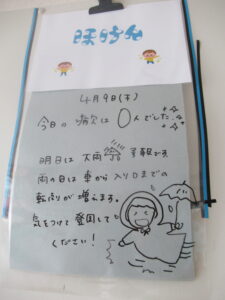 4月9日(木)
今日の欠は0人でした
明日は大雨予報です
雨の日は車から入り口までの
転倒が増えます。
気をつけて登園して
ください!